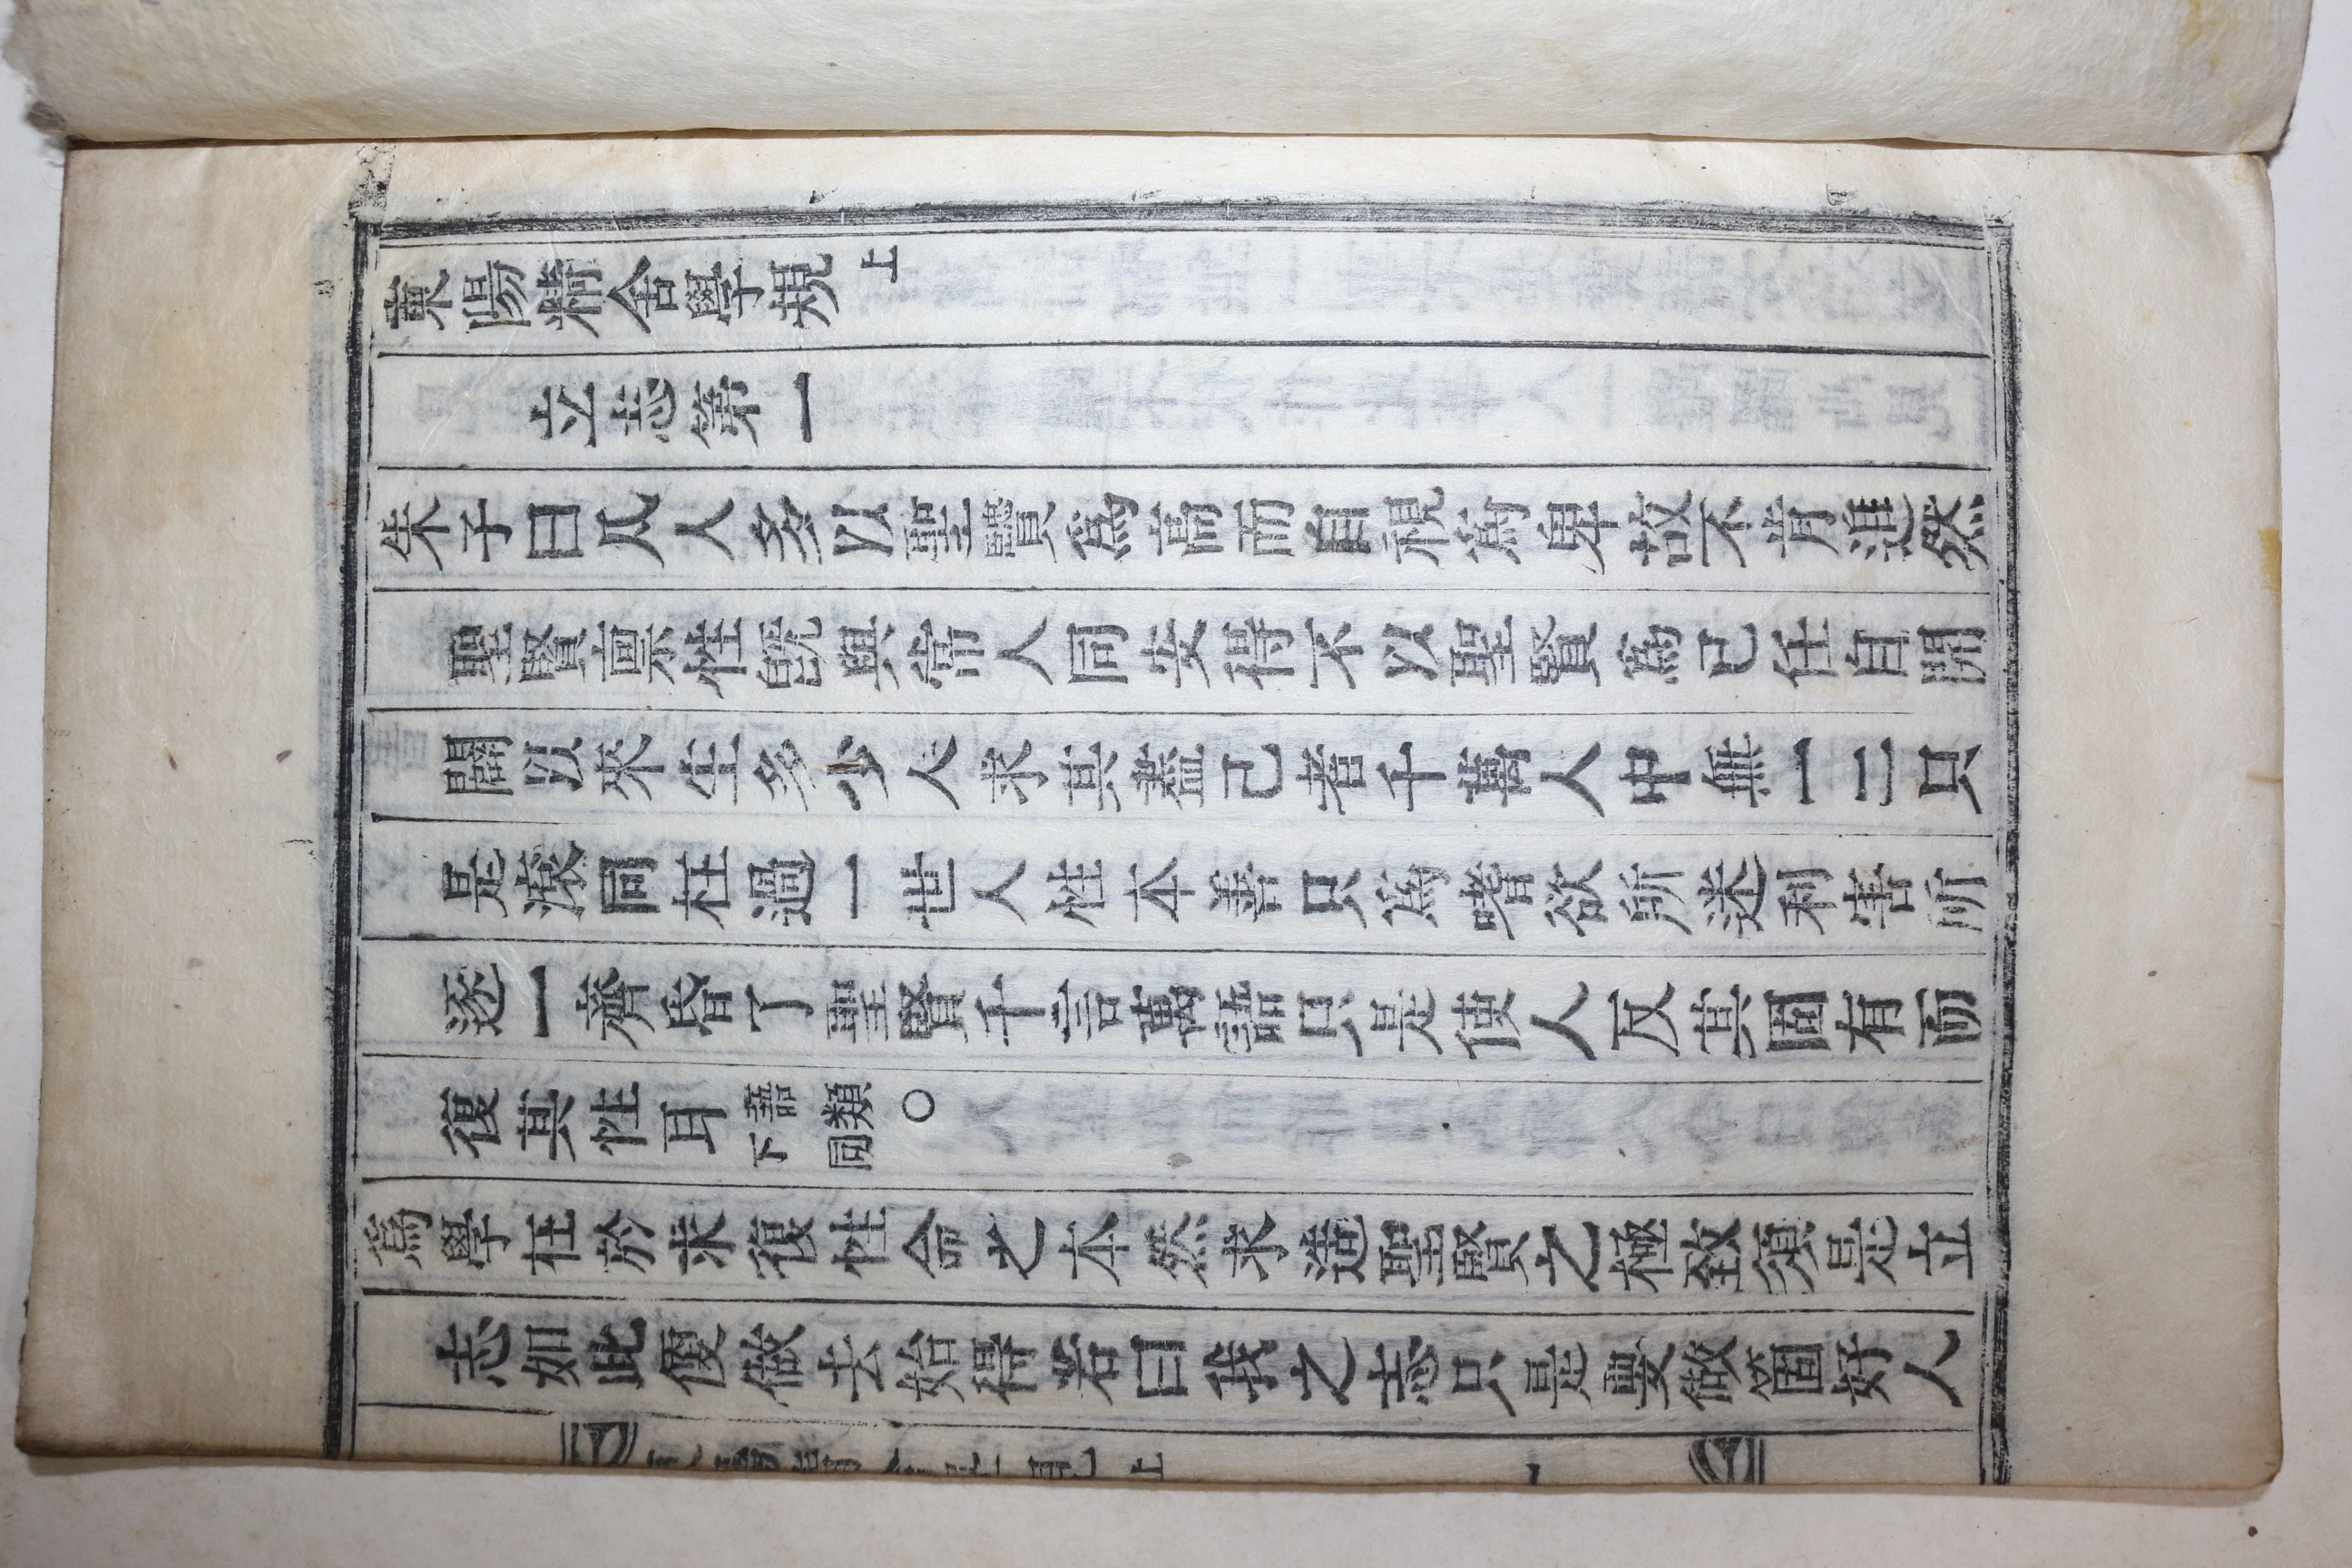 東陽精舍學規上
立志第一
朱子曰凡人多以聖賢爲高而自視爲卑故不肯進然
聖賢稟性旣與常人同安得不以聖賢爲己任自開
闢以來生多少人求其盡己者千萬人中無一二只
是滾同枉過一世人性本善只爲嗜欲所迷利害所
逐一齊昏了聖賢千言萬語只是使人反其固有而
復其性耳語類下同○
爲學在於求復性命之本然求造聖賢之極致須是立
志如此便做去始得若曰我之志只是要做箇好人
東陽精舍學規上 一